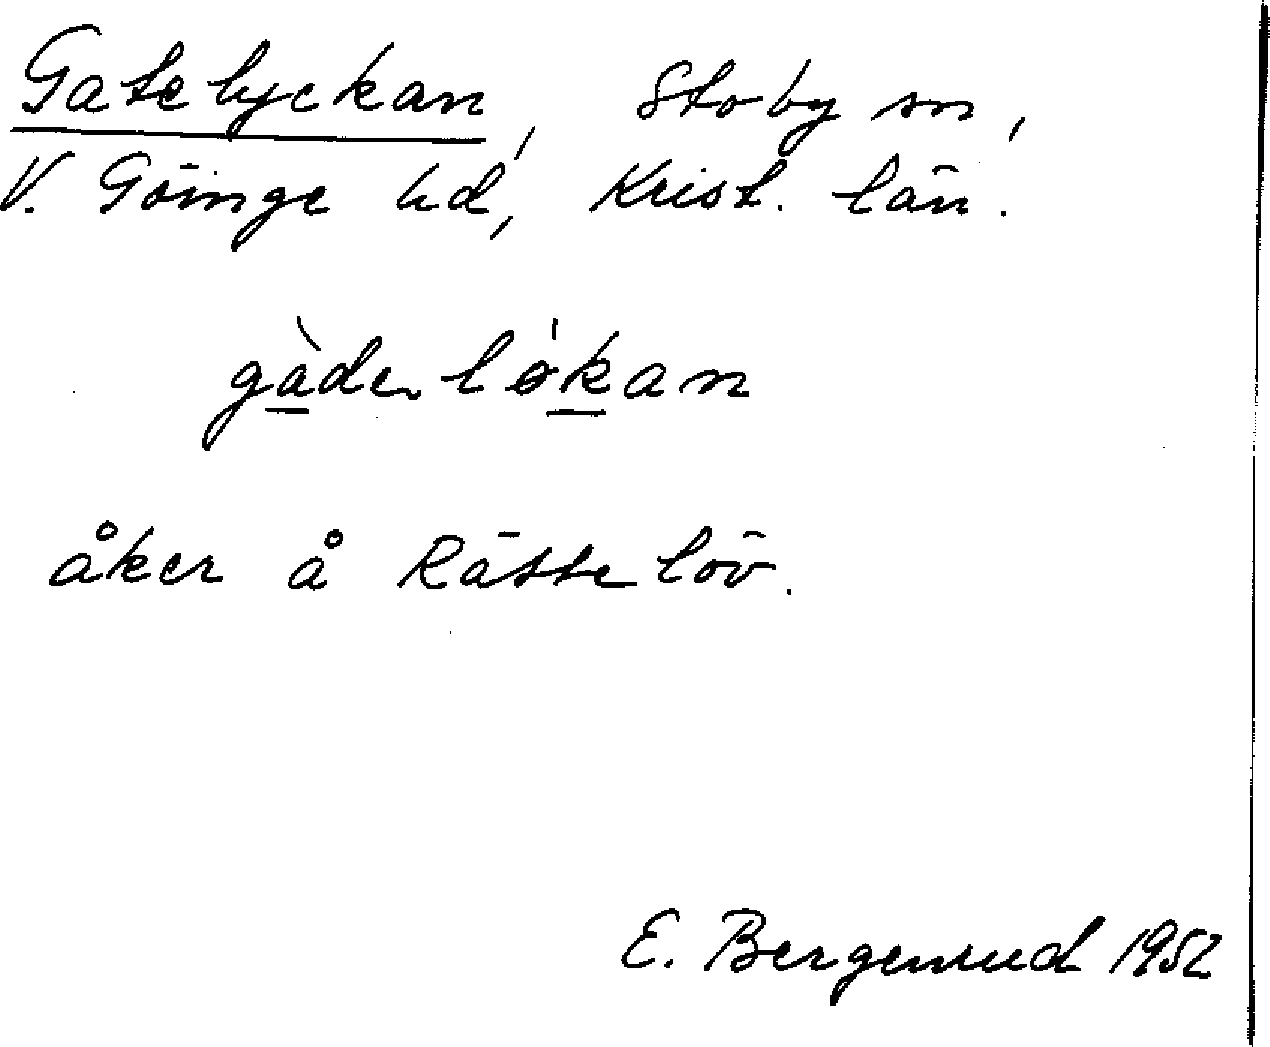 Gatelyckan, Stoby sn,
V. Göinge hd, Krist. län.
gàdelø̀kan
åker å Rättelöv.
E. Bergenrud 1952